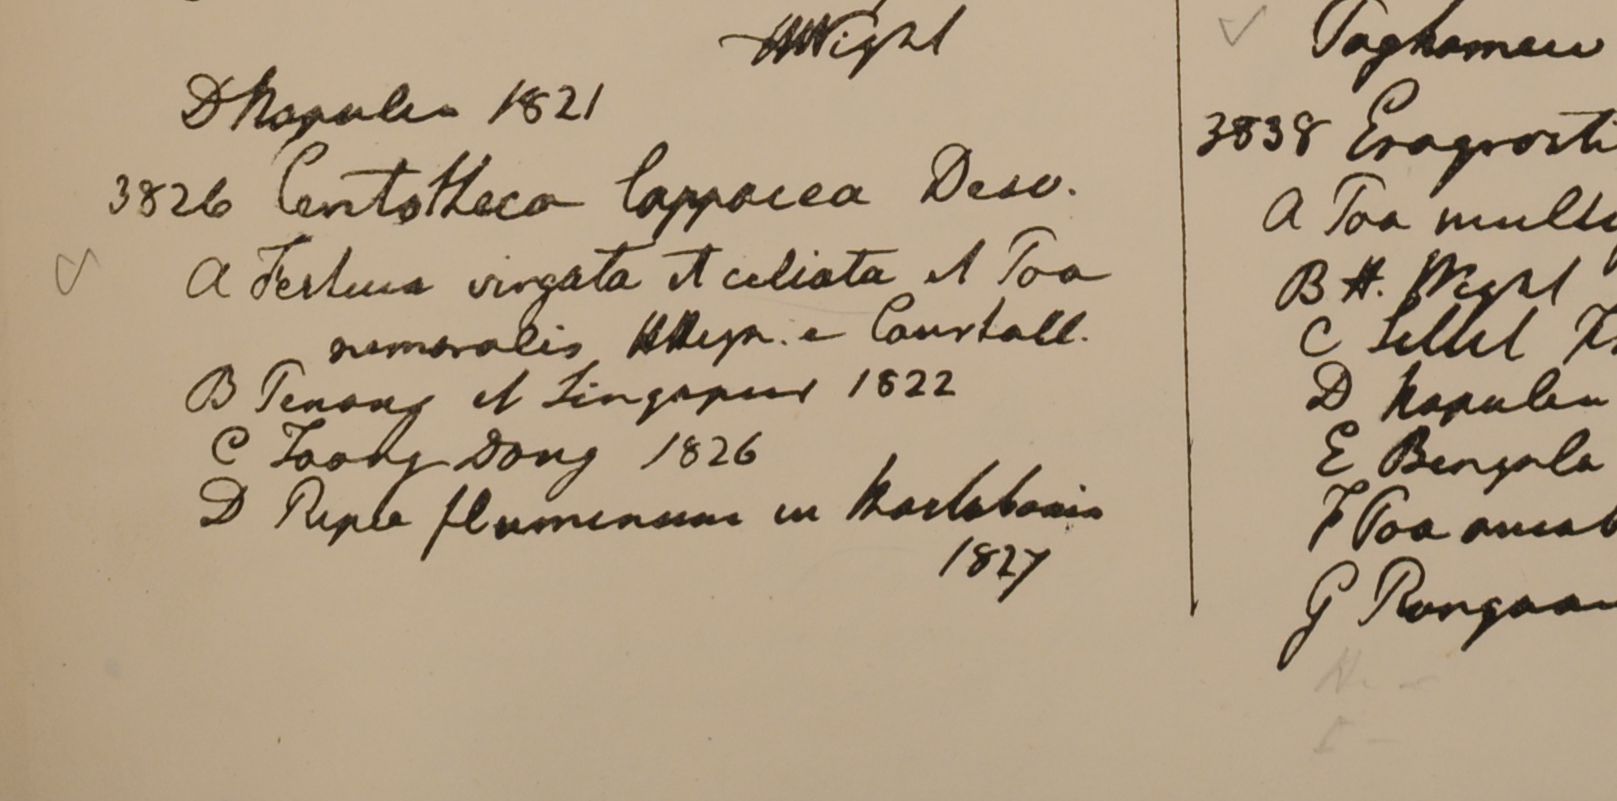 HWight
D Napulea 1821
3826 Centotheca lappacea Desv.
A Festuca virgata et ciliata et Poa
nemoralis HHeyn. e Courtall.
B Penang et Singapur 1822
C Toong Dong 1826
D Ripia fluminum in Martabania
1827
Taghamew
3838 Eragrosti
A Poa multi
B H. Wight
C Sillet
D Napulea
E Bengala
F Poa
G Rangoon